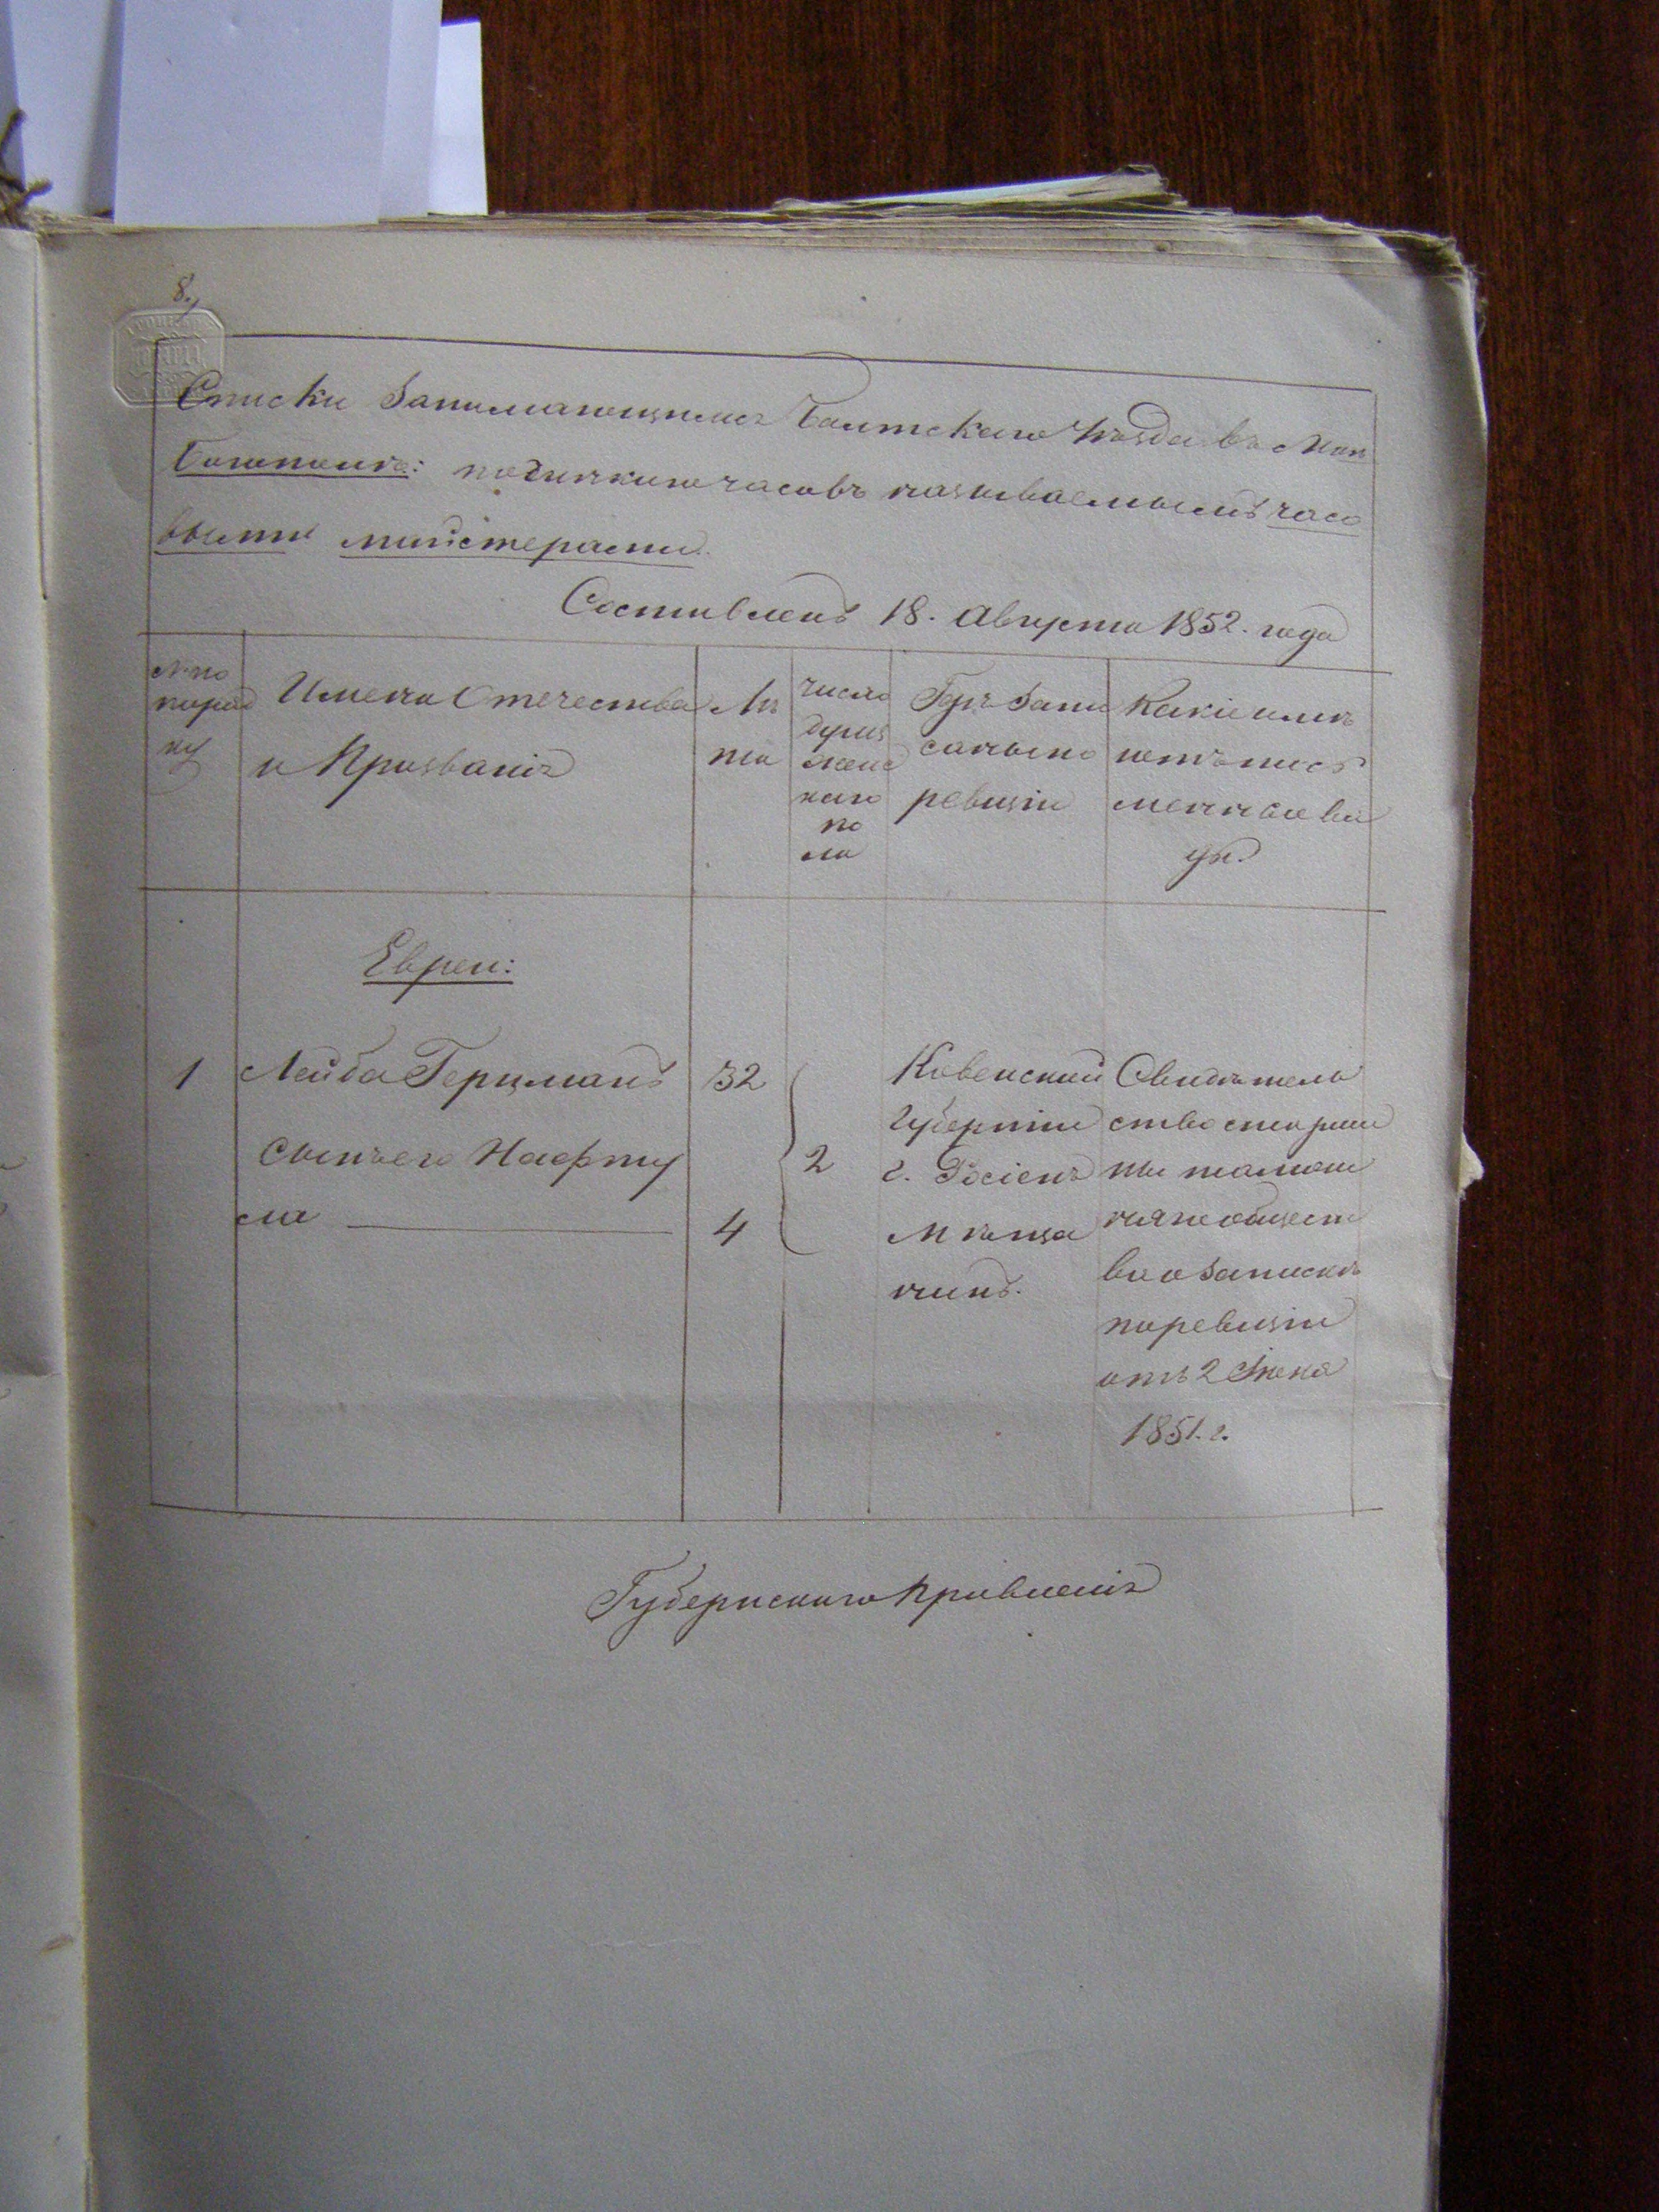 8.
Списки Занимающимся Балтскаго Уѣзда въ Мѣс
Богополѣ: починкою часовъ называемымъ часо
выми мийстерами.
Составленъ 18. Августа 1852. года
№ по
поряд
ку
Имена Отечества
и Прозваніѣ
Лѣ
та
число
душъ
женс
каго
по
ла
Гдѣ Запи
саны по
ревизіи
Какіе имѣ
ютъ пись
менные ви
ды.
Евреи:
1 Лейба Герцманъ 32
сынъ его Нафту
ла 4
2
Ковенский
Губерніи
г. Росіенъ
Мѣща
нинъ.
Свидѣтель
ство старши
ны тамош
няго общест
ва о Запискѣ
по ревизіи
отъ 2 Июня
1851. г.
Губернскаго Правленіѣ